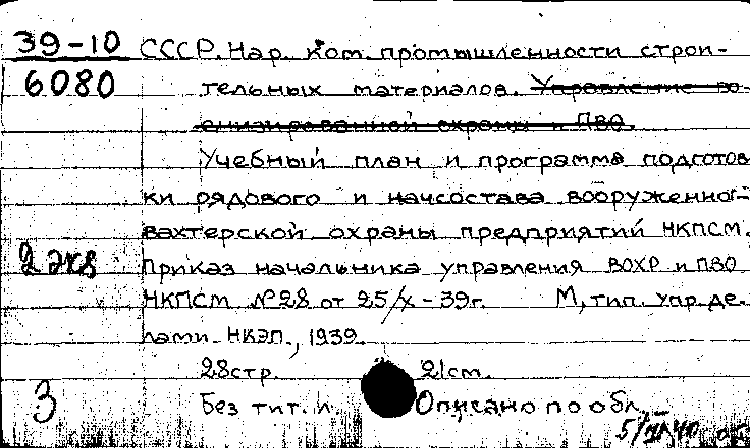 39-10 СССР. Нар. ком. промышленности строи-
6080 тельных материалов. Управление во-
енизированной охраны и ПВО.
Учебный план и программа подготов
ки рядового и начсостава вооруженно-
вахтерской охраны предприятий НКПСМ.
2 экз Приказ начальника управления ВОХР и ПВО
НКПСМ №28 от 25/X-39г. М, тип. Упр. де-
лами НКЭП., 1939.
28стр. 21см.
3 Без тит. л. Описано по обл.